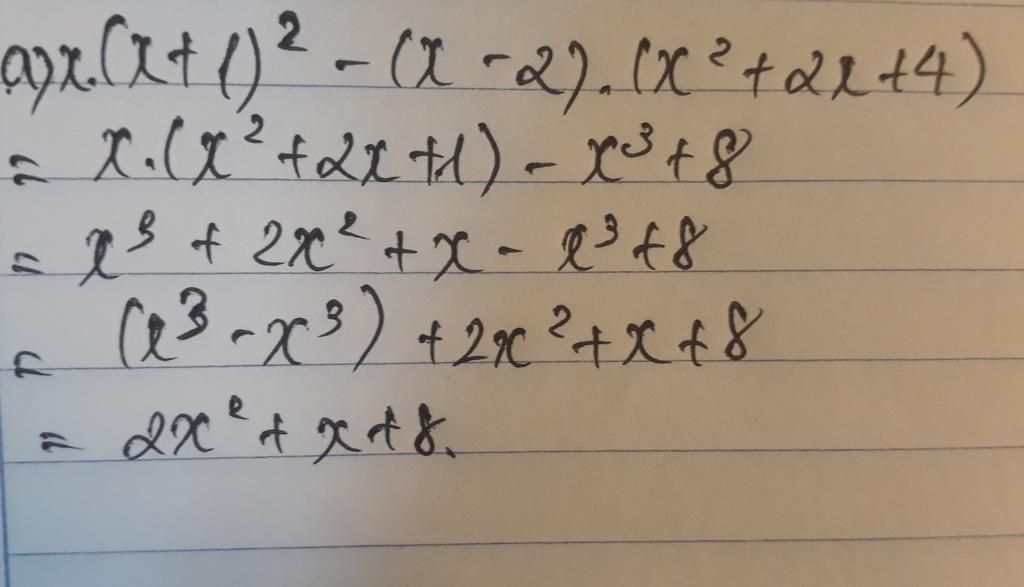 a) x.(x+1)² - (x-2).(x²+2x+4)
= x.(x²+2x+1) - x³+8
= x³ + 2x² + x - x³ + 8
= (x³ - x³) + 2x² + x + 8
= 2x² + x + 8.